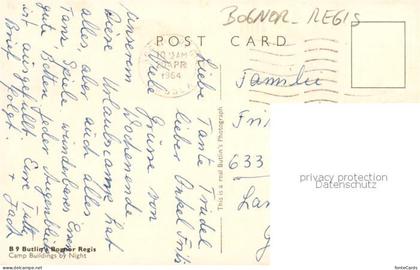 BOGNOR-REGIS
POST CARD
1964
Liebe Tante Trudel
lieber Onkel Fritz
Liebe Grüsse von
unserem Wochenende
Diese Urlaubscamp hat
alles, aber auch alles
Tanz, Spiele, wunderbares Essen
gute Betten, jeder Augenblick
ist ausgefüllt. Eure Trudy
Brief folgt. + Jack
Familie
Fri
633
La
This is a real Butlin's Photograph
B 9 Butlin's Bognor Regis
Camp Buildings by Night
privacy protection
Datenschutz